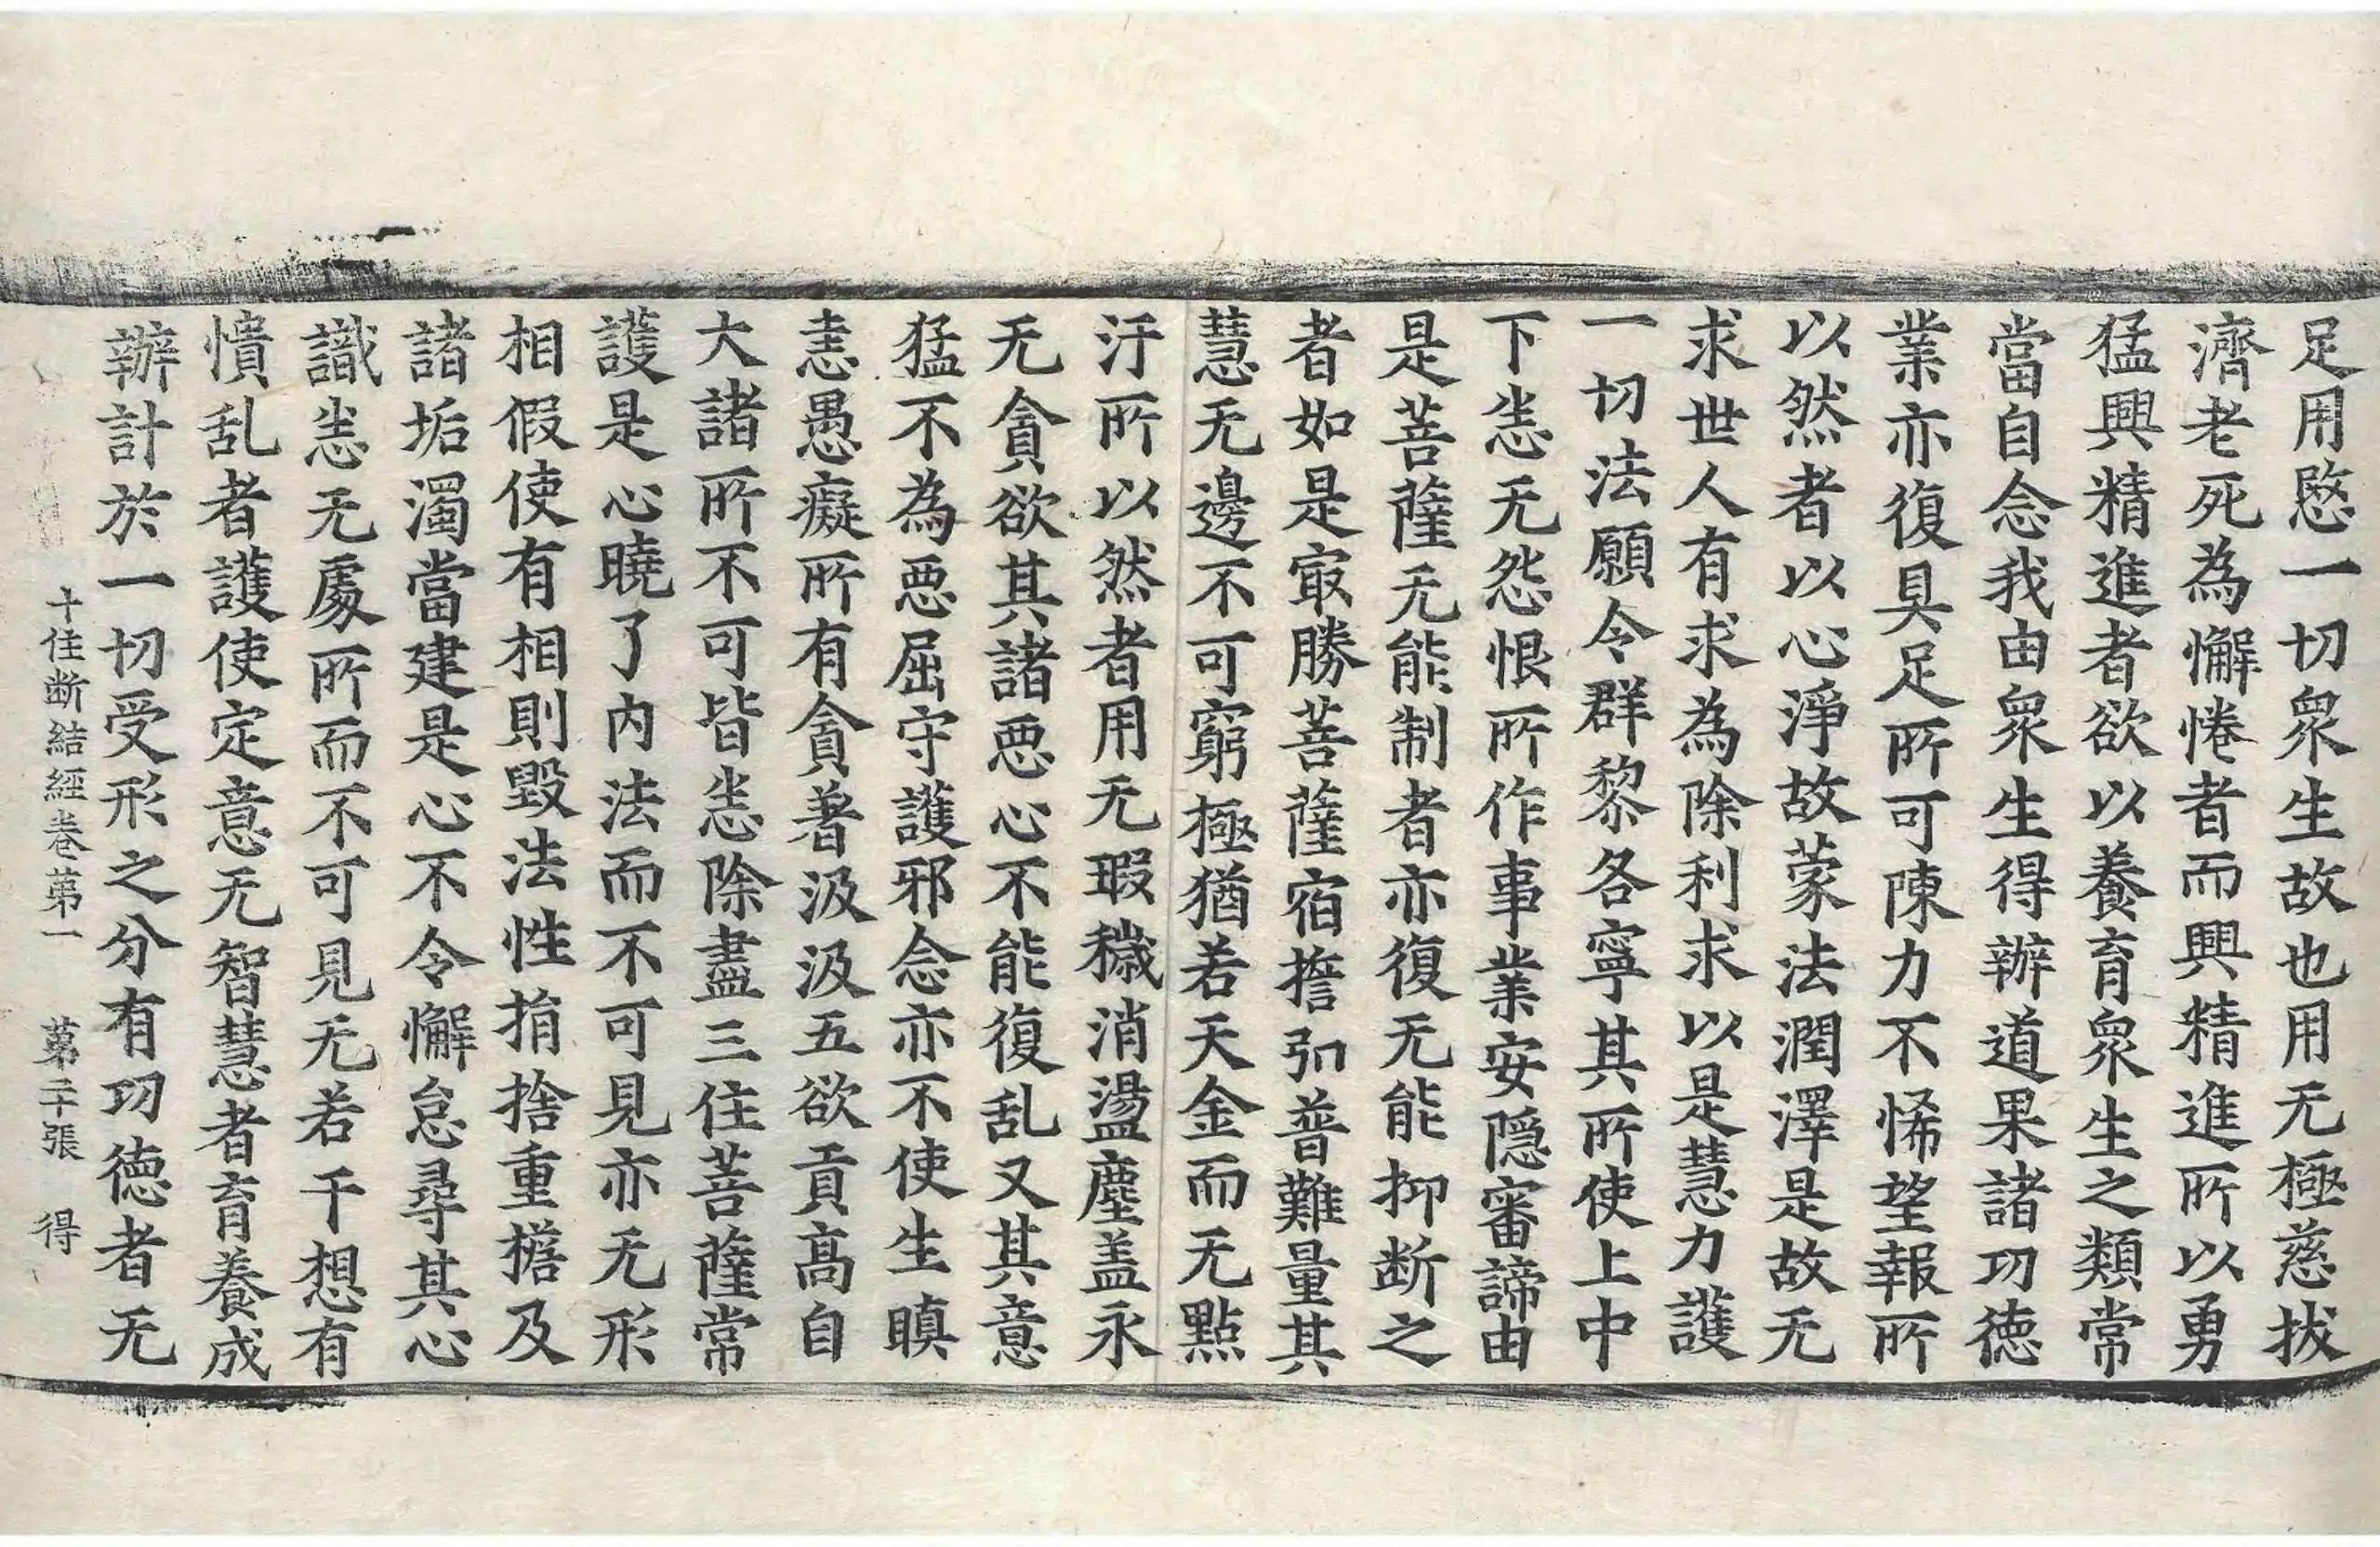 足用愍一切衆生故也用无極慈拔
濟老死為懈惓者而興精進所以勇
猛興精進者欲以養育衆生之類常
當自念我由衆生得辦道果諸功德
業亦復具足所可陳力不悕望報所
以然者以心淨故蒙法潤澤是故无
求世人有求為除利求以是慧力護
一切法願令群黎各寧其所使上中
下恙无怨恨所作事業安隱審諦由
是菩薩无能制者亦復无能抑断之
者如是冣勝菩薩宿擔弘普難量其
慧无邊不可窮極猶若天金而无點
汙所以然者用无瑕穢消盪塵盖永
无貪欲其諸惡心不能復乱又其意
猛不為惡屈守護邪念亦不使生瞋
恚愚癡所有貪著汲汲五欲貢高自
大諸所不可皆恙除盡三住菩薩常
護是心曉了内法而不可見亦无形
相假使有相則毀法性捐捨重擔及
諸垢濁當建是心不令懈怠尋其心
識恙无處所而不可見无若干想有
憒乱者護使定意无智慧者育養成
辦計於一切受形之分有功德者无
十住断結經卷第一 第二十張 得